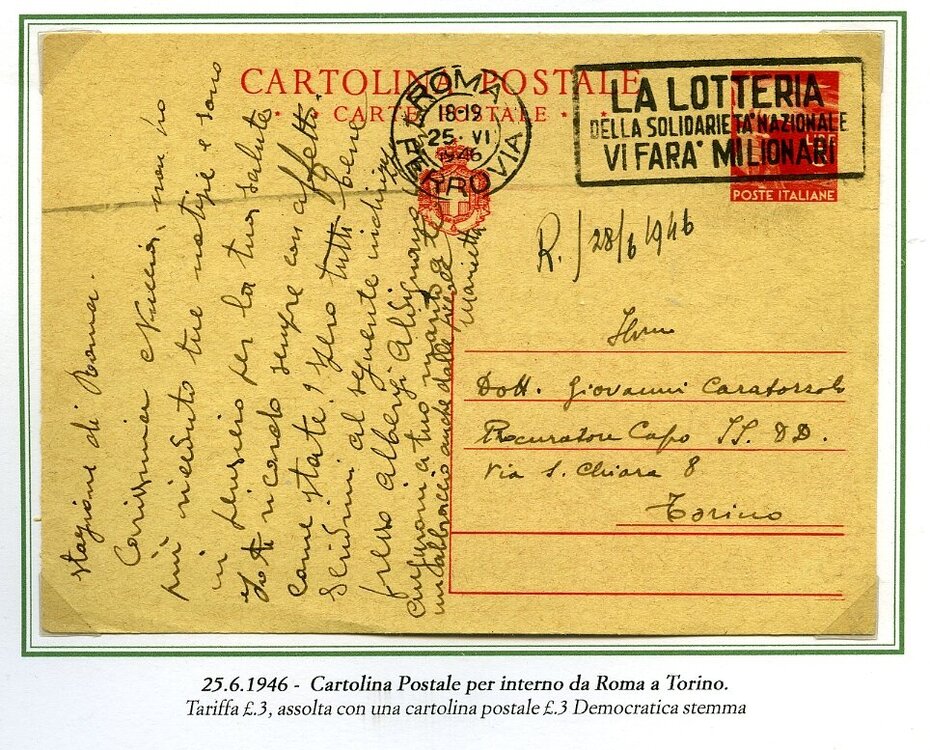 CARTOLINA POSTALE
CARTE POSTALE
ROMA
18-19
25·VI
1946
FERROVIA
LA LOTTERIA
DELLA SOLIDARIETA' NAZIONALE
VI FARA' MILIONARI
POSTE ITALIANE
R./28/6/1946
Dott. Giovanni
Procuratore Capo II. DD.
Via S. Chiara 8
Torino
Stazione di Roma.
Carissima non ho
più ricevuto tue notizie e sono
in pensiero per la tua salute
ti ricordo sempre con affetto.
come state? spero tutti bene
scrivimi al seguente indirizzo
presso Albergi
a tuo marito a te
un abbraccio anche dalle
Marietta
25.6.1946 - Cartolina Postale per interno da Roma a Torino.
Tariffa £.3, assolta con una cartolina postale £.3 Democratica stemma